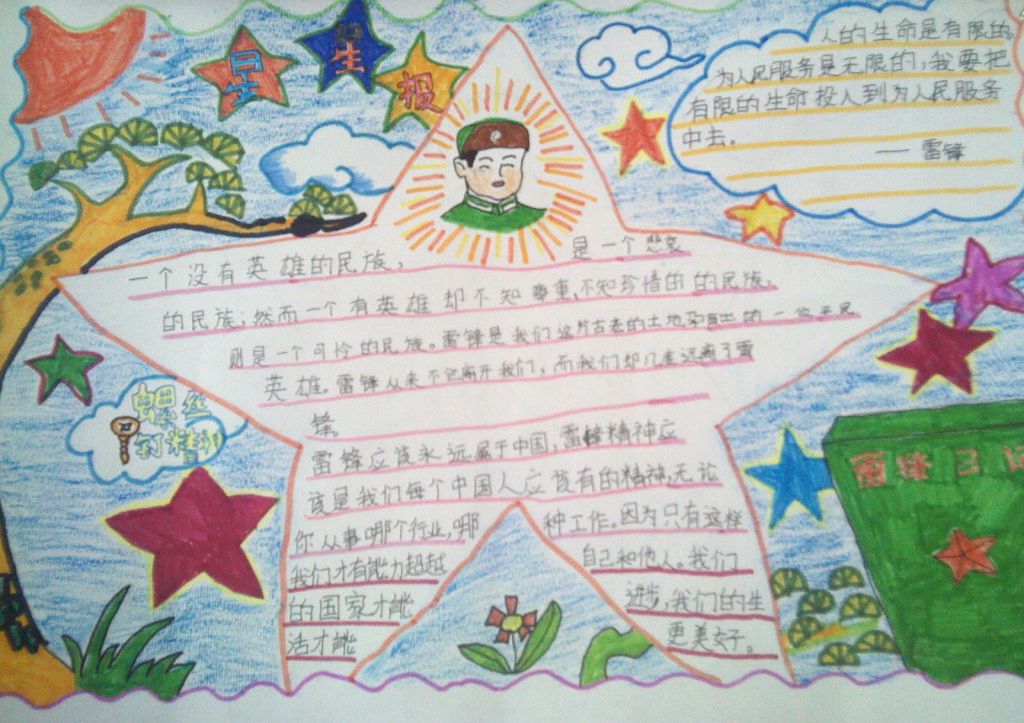 星生报
人的生命是有限的
为人民服务是无限的,我要把
有限的生命投入到为人民服务
中去。
—雷锋
一个没有英雄的民族, 是一个悲哀
的民族;然而一个有英雄却不知尊重、不知珍惜的的民族,
则是一个可怜的民族。雷锋是我们这片古老的土地孕育出的一位平民
英雄。雷锋从来不会离开我们,而我们却几度远离了雷
锋。
雷锋应该永远属于中国,雷锋精神应
该是我们每个中国人应该有的精神,无论
你从事哪个行业,哪 种工作。因为只有这样
我们才有能力超越 自己和他人。我们
的国家才能 进步,我们的生
活才能 更美好。
螺丝
钉精神
雷锋日记